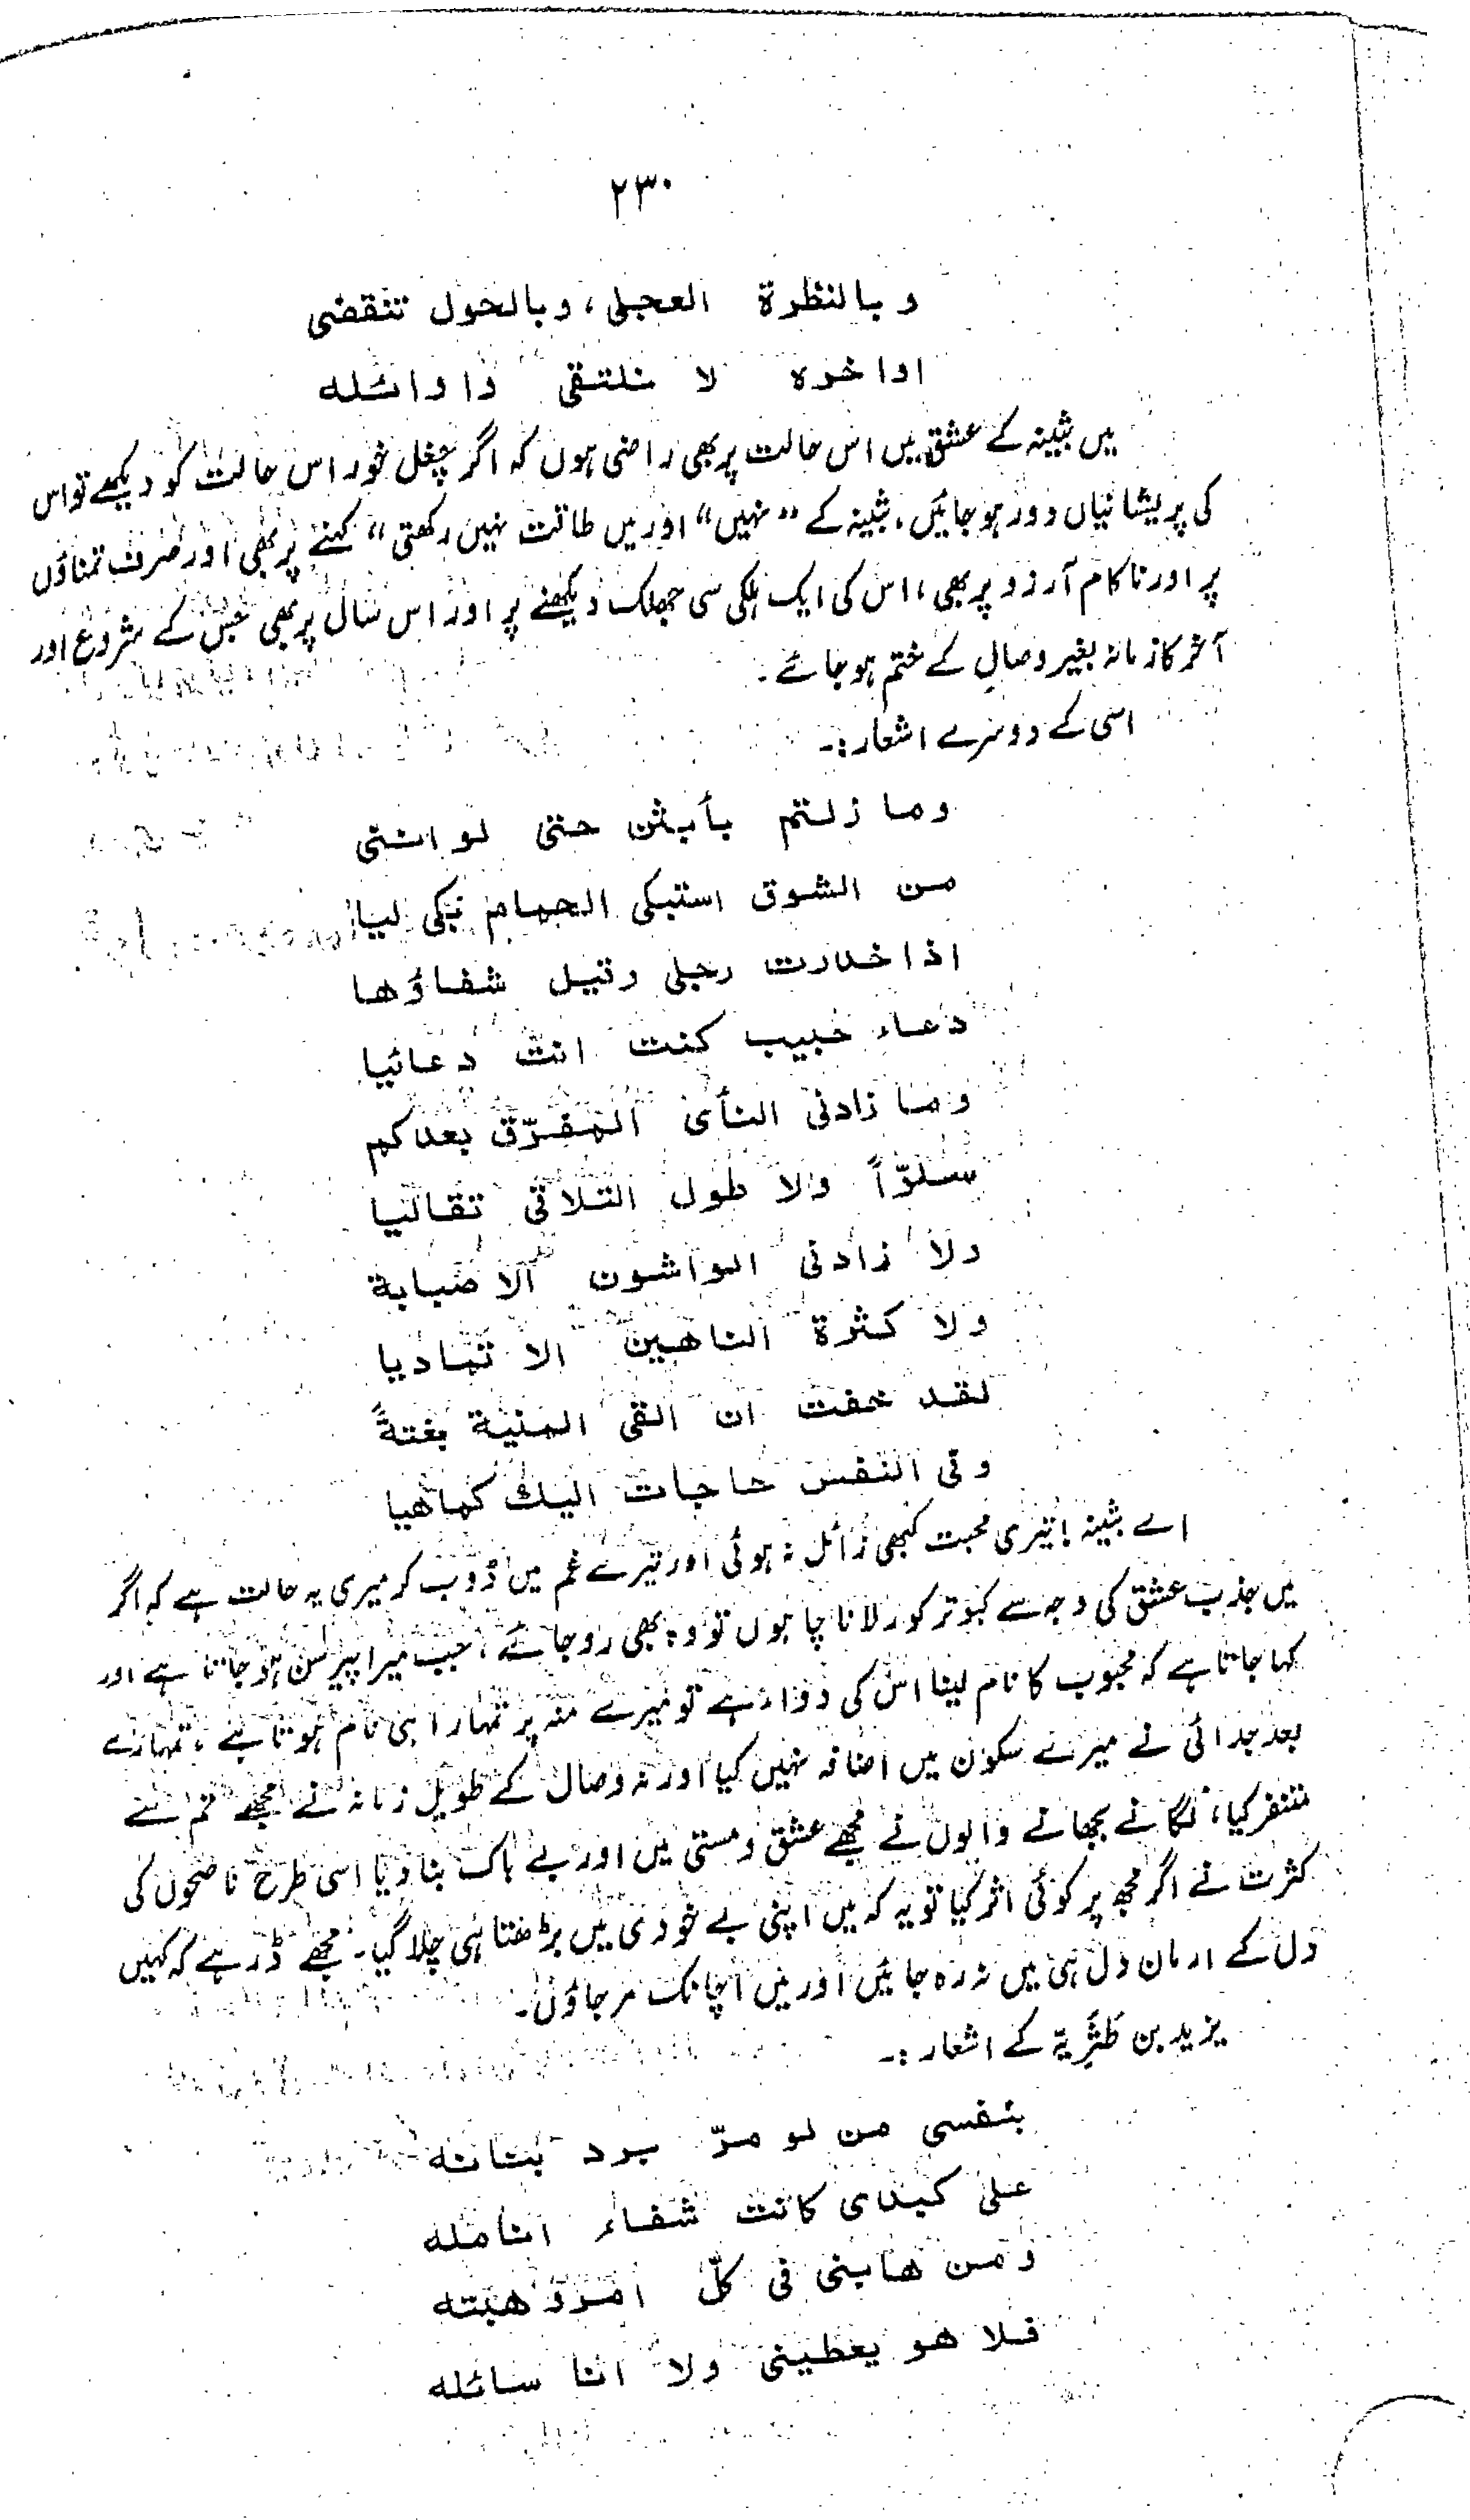 ۲۳۰
وبالنظرة العجلى، وبالحول تنقضی
اواخره لا نلتقی واوائله
میں بثینہ کے عشق میں اس حالت پر بھی راضی ہوں کہ اگر چغل خور اس حالت کو دیکھے تو اس
کی پریشانیاں دور ہو جائیں، بثینہ کے "نہیں" اور میں طاقت نہیں رکھتی" کہنے پر بھی اور صرف تمناؤں
پر اور ناکام آرزو پر بھی، اس کی ایک ہلکی سی جھلک دیکھنے پر اور اس سال پر بھی جس کے شروع اور
آخر کا زمانہ بغیر وصال کے ختم ہو جائے۔
اسی کے دوسرے اشعار:۔
وما زلتم يأبثن حتى لو اننی
من الشوق استبکی الحمام بکی لیا
اذا خدرت رجلی وقيل شفاؤها
دعاء حبيب کنت انت دعائیا
وما زادنی النأی المفرّق بعدکم
سلوّاً ولا طول التلاقی تقالیا
ولا زادنی الواشون الا صبابة
ولا کثرة الناهین الا تمادیا
لقد خفت ان القی المنیة بغتةً
وفی النفس حاجات الیك کماهیا
اے بثینہ! تیری محبت کبھی زائل نہ ہوئی اور تیرے غم میں ڈوب کر میری یہ حالت ہے کہ اگر
میں جذب عشق کی وجہ سے کبوتر کو رلانا چاہوں تو وہ بھی رو جائے، جب میرا پیر سن ہو جاتا ہے اور
کہا جاتا ہے کہ محبوب کا نام لینا اس کی دوا ہے تو میرے منہ پر تمہارا ہی نام ہوتا ہے، تمہارے
بعد جدائی نے میرے سکون میں اضافہ نہیں کیا اور نہ وصال کے طویل زمانہ نے مجھے تم سے
متنفر کیا، لگانے بجھانے والوں نے مجھے عشق و مستی میں اور بے باک بنا دیا اسی طرح ناصحوں کی
کثرت نے اگر مجھ پر کوئی اثر کیا تو یہ کہ میں اپنی بے خودی میں بڑھتا ہی چلا گیا۔ مجھے ڈر ہے کہ کہیں
دل کے ارمان دل ہی میں نہ رہ جائیں اور میں اچانک مر جاؤں۔
یزید بن طَثْرِیَّة کے اشعار:۔
بنفسی من لو مرّ برد بنانه
علی کبدی کانت شفاء انامله
ومن هابنی فی کلّ امر وهبته
فلا هو یعطینی ولا انا سائله